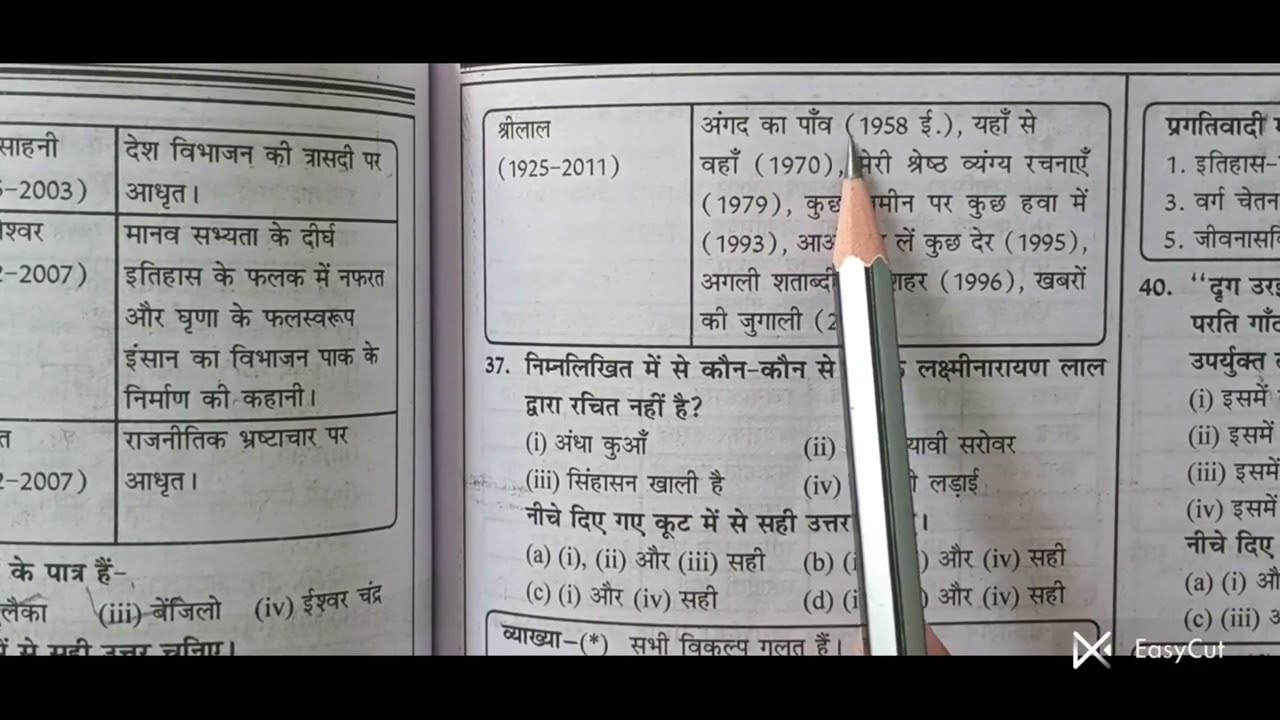 साहनी
-2003)
देश विभाजन की त्रासदी पर
आधृत।
श्वर
-2007)
मानव सभ्यता के दीर्घ
इतिहास के फलक में नफरत
और घृणा के फलस्वरूप
इंसान का विभाजन पाक के
निर्माण की कहानी।
त
-2007)
राजनीतिक भ्रष्टाचार पर
आधृत।
के पात्र हैं-
लैका (iii) बेंजिलो (iv) ईश्वर चंद्र
में से सही उत्तर चुनिए।
श्रीलाल
(1925-2011)
अंगद का पाँव (1958 ई.), यहाँ से
वहाँ (1970), मेरी श्रेष्ठ व्यंग्य रचनाएँ
(1979), कुछ जमीन पर कुछ हवा में
(1993), लें कुछ देर (1995),
अगली शताब्दी शहर (1996), खबरों
की जुगाली (2
37. निम्नलिखित में से कौन-कौन से लक्ष्मीनारायण लाल
द्वारा रचित नहीं है?
(i) अंधा कुआँ (ii) सरोवर
(iii) सिंहासन खाली है (iv) लड़ाई
नीचे दिए गए कूट में से सही उत्तर
(a) (i), (ii) और (iii) सही (b) और (iv) सही
(c) (i) और (iv) सही (d) और (iv) सही
व्याख्या-(*) सभी विकल्प गलत हैं।
प्रगतिवादी
1. इतिहास-
3. वर्ग चेतन
5.
40. "दृग
परति
उपर्युक्त
(i) इसमें
(ii) इसमें
(iii) इसमें
(iv) इसमें
नीचे दिए
(a) (i) औ
(c) (iii)
EasyCut